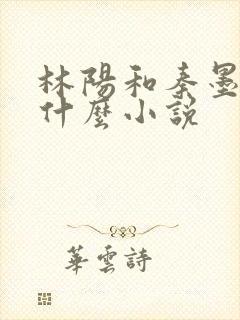 林陽和秦墨
什麼小說
華雲詩